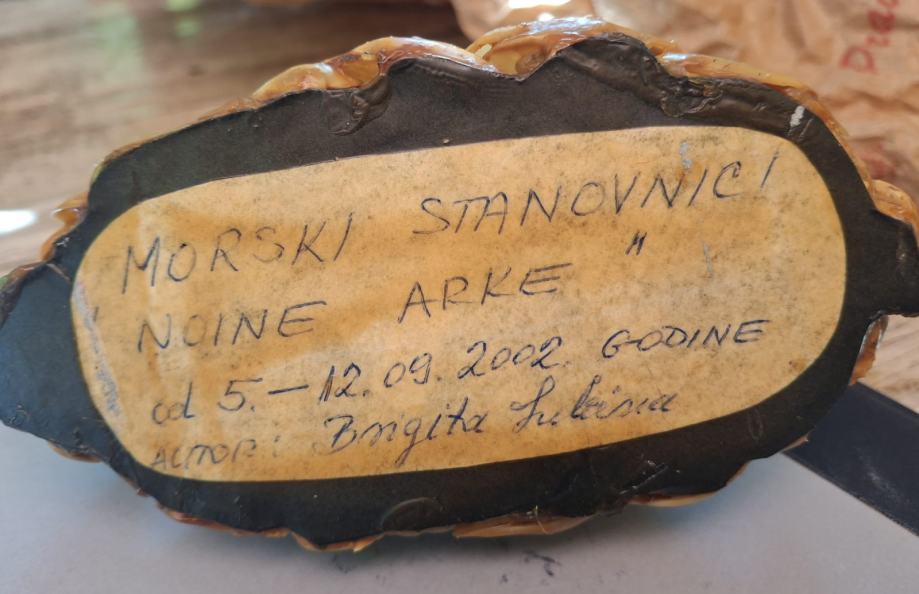 MORSKI STANOVNICI
" NOINE ARKE "
od 5. – 12. 09. 2002. GODINE
AUTOR: Brigita